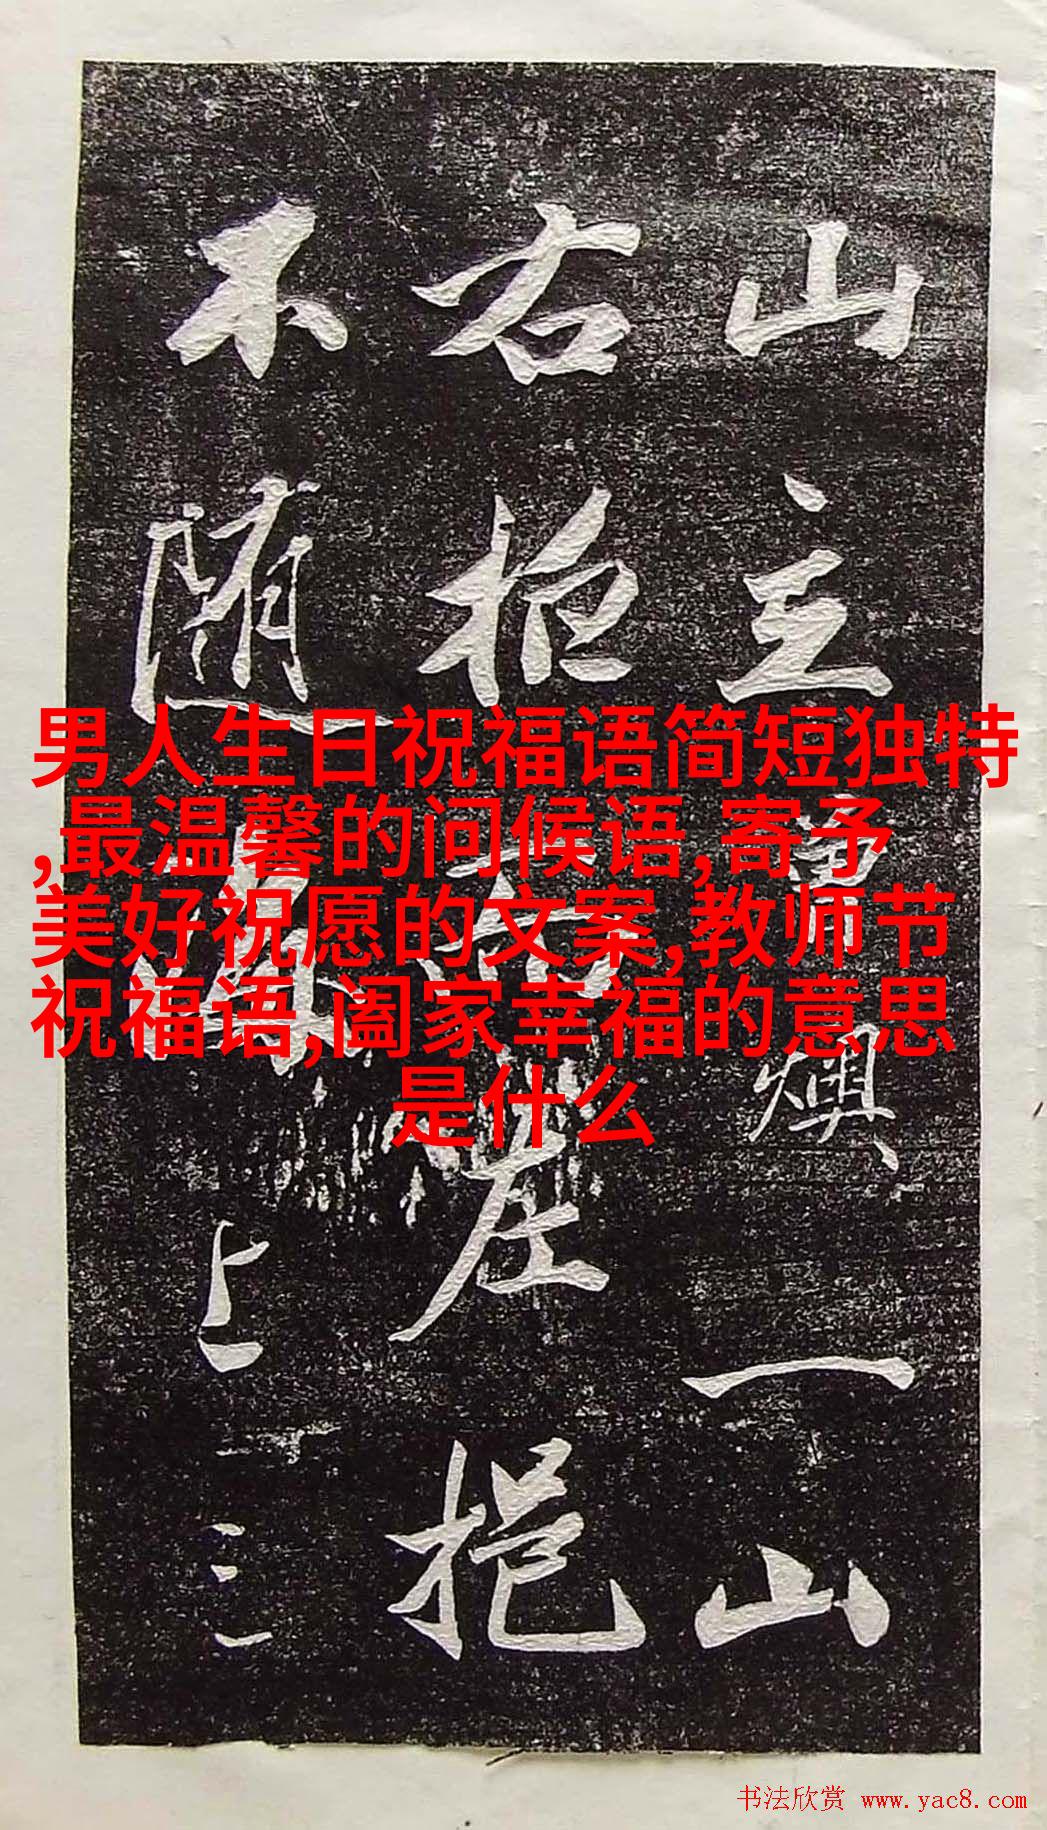 男人生日祝福语简短独特
,最温馨的问候语,寄予
美好祝愿的文案,教师节
祝福语,阖家幸福的意思
是什么
山主
燠、一山
右拒
左挹
不随
上二
三
书法欣赏 www.yac8.com